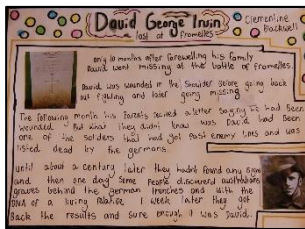 David George Irvin
lost at fromelles
Clementine
only 10 months after farewelling his family
David went missing at the battle of fromelles.
David was wounded in the shoulder before going back
out fighting and later going missing
The following month his parents recived a letter saying he had been
wounded. But what they didnt know was David had been
one of the soldiers that had got past enemy lines and was
listed dead by the germans.
until about a century later they hadnt found any signs
and then one day some people discoverd
graves behind the german trenches and with the
DNA of a living relative 1 week later they got
back the results and sure enough it was David.